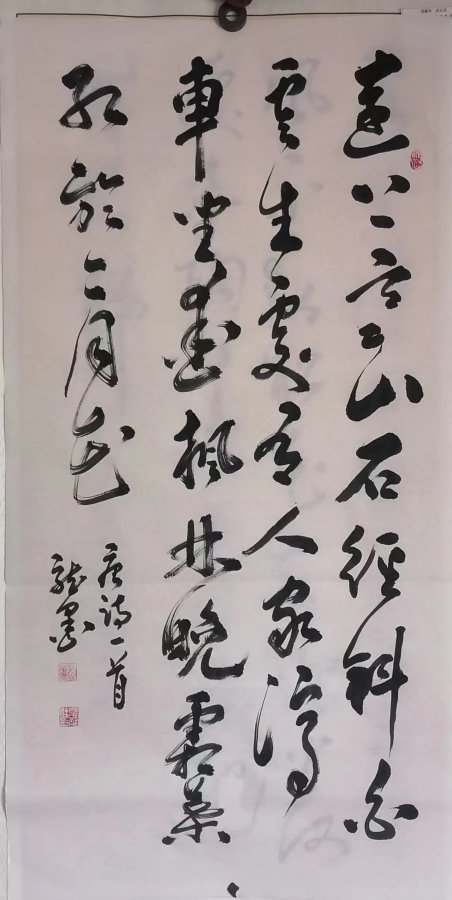 遠上寒山石徑斜白
雲生處有人家停
車坐愛楓林晚霜葉
紅於二月花
唐詩一首
龍墨